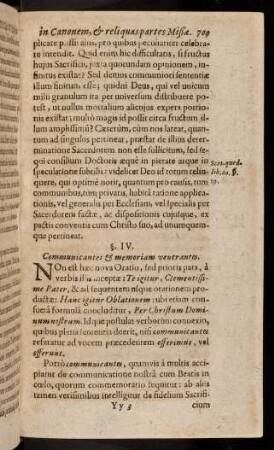 in Canonem, & reliquas partes Missæ. 709
plicare possit alijs, pro quibus peculiariter celebrare
intendit. Quid enim hic difficultatis, si fructus
hujus Sacrificij, juxta quorumdam opinionem, in-
finitus existat? Sed demus communiori sententiæ
illum finitum esse; quidni Deus, qui vel unicum
milij granulum ita per universum distribuere po-
test, ut nullus mortalium alicujus expers portio-
nis existat; multò magis id possit circa fructum il-
lum amplissimũ? Cæterùm, cùm nos lateat, quan-
tum ad singulos pertineat, præstat de illius deter-
minatione Sacerdotem non esse sollicitum, sed se-
qui consilium Doctoris æquè in pietate atque in
speculatione subtilis: videlicet Deo id totum relin-
quere, qui optimè novit, quantum pro reatus, tum
communibus, tum privatis, habitâ ratione applica-
tionis, vel generalis per Ecclesiam, vel specialis per
Sacerdotem factæ, ac dispositionis cujusque, ex
pactis conventis cum Christo suo, ad unumquem-
que pertineat.
Scot. quod-
lib. 20. §.
§. IV.
Communicantes & memoriam venerantes.
NOn est hæc nova Oratio, sed prioris pars, à
verbis illis acceptæ: Te igitur, Clementissime
Pater, & ad sequentem usque orationem produ-
ctæ: Hanc igitur Oblationem: ubi etiam consu-
tâ formulâ concluditur, Per Christum Domi-
num nostrum. Idque postulat verborum connexio,
quibus plena sententia deerit, nisi communicantes
referatur ad vocem præcedentem offerimus, vel
offerunt.
Porrò communicantes, quamvis à multis acci-
piatur de communicatione nostrâ cum Beatis in
cœlo, quorum commemoratio sequitur: ab alijs
tamen verisimilius intelligitur de fidelium Sacrifi-
Yy 3 cium